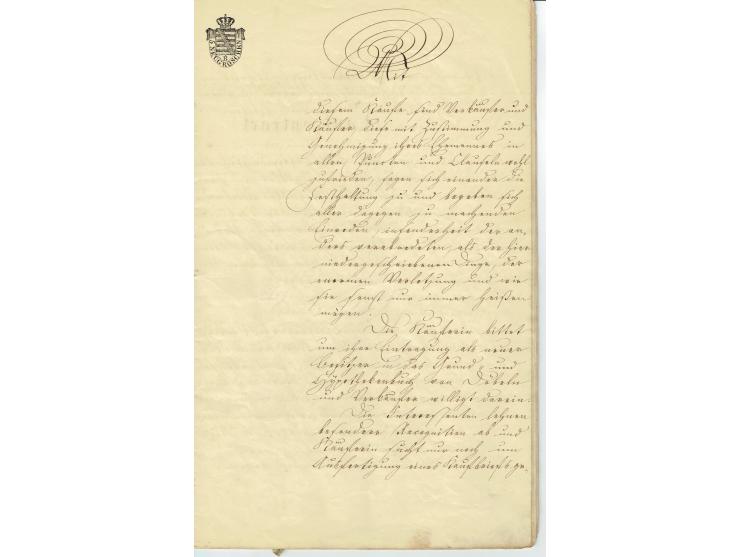 5 NEUGROSCHEN
Mit
diesem Kaufe sind Verkäufer und
Käufer, diese mit Zustimmung und
Genehmigung ihres Ehemannes in
allen Puncten und Clauseln wohl
zufrieden, sagen sich einander die
Festhaltung zu und begeben sich
aller dagegen zu machenden
Einreden, insonderheit der an-
ders verabredeten, als der hier
niedergeschriebenen Dinge, der
enormen Verletzung und wie
sie sonst nur immer heißen
mögen.
Die Käuferin bittet
um ihre Eintragung als neuer
Besitzer in das Grund- und
Hypothekenbuch von Döbeln
und Verkäufer willigt darein.
Die Interessenten lehnen
besondere Recognition ab und
Käuferin sucht nur noch um
Ausfertigung eines Kaufbriefs ge-